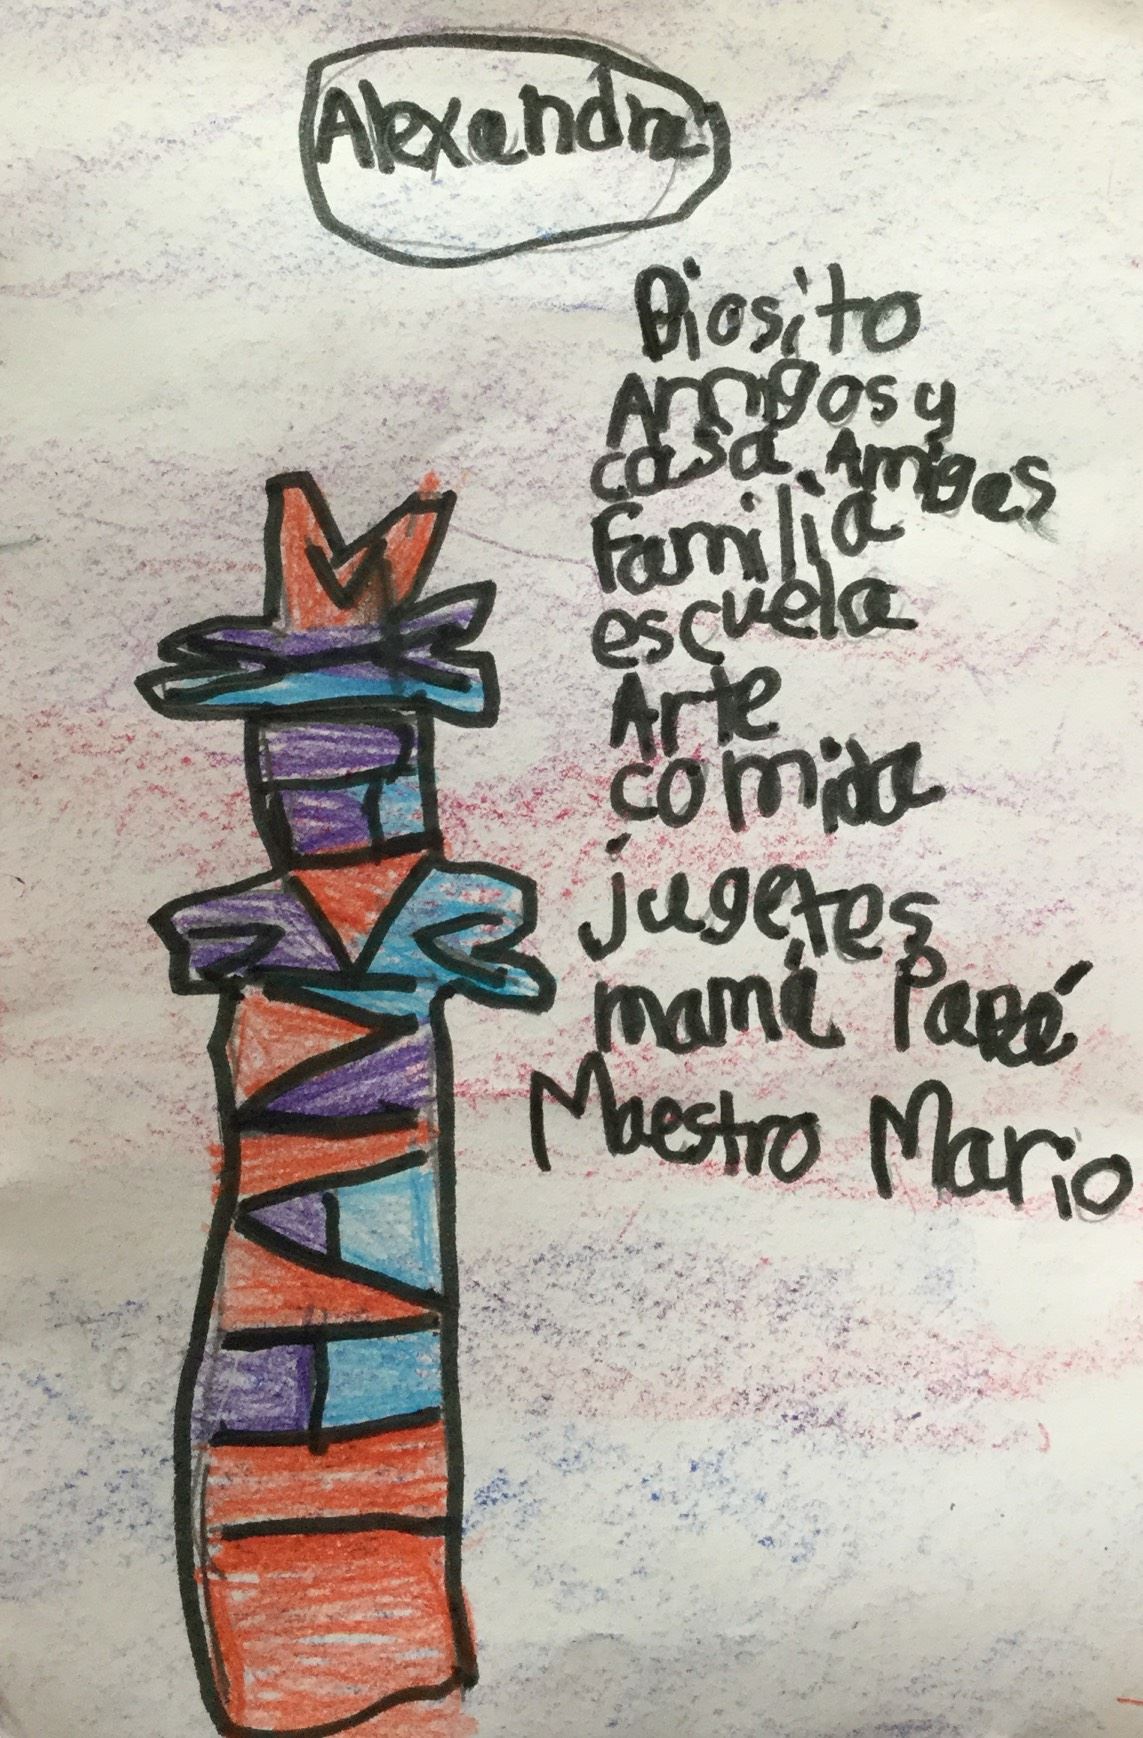 Alexandra
Diosito
Amigos y
casa Amigas
Familia
escuela
Arte
comida
jugetes
mamá Papá
Maestro Mario